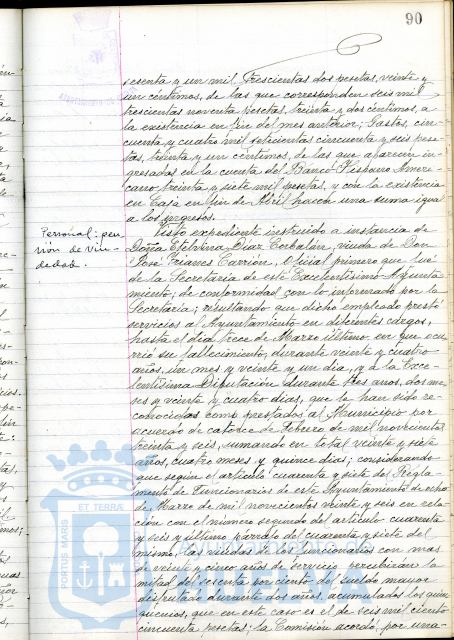 90
sesenta y un mil trescientas dos pesetas, veinte y
un céntimos, de las que corresponden seis mil
trescientas noventa pesetas, treinta y dos céntimos, a
la existencia en fin del mes anterior; Gastos, cin-
cuenta y cuatro mil setecientas cincuenta y seis pese-
tas, treinta y un céntimos, de las que aparecen in-
gresadas en la cuenta del Banco Hispano Ameri-
cano treinta y siete mil pesetas, y con la existencia
en Caja en fin de Abril hacen una suma igual
a los ingresos.
Personal: pen-
sión de viu-
dedad.
Visto expediente instruido a instancia de
Doña Etelvina Diaz Corbalán, viuda de Don
José Franes Carrión, Oficial primero que fué
de la Secretaria de este Excelentisimo Ayunta
miento, de conformidad con lo informado por la
Secretaria; resultando que dicho empleado prestó
servicios al Ayuntamiento en diferentes cargos,
hasta el dia trece de Marzo último en que ocu-
rrió su fallecimiento, durante veinte y cuatro
años, un mes y veinte y un dia, y a la Exce-
lentisima Diputación durante tres años, dos me-
ses y veinte y cuatro dias, que le han sido re-
conocidos como prestados al Municipio por
acuerdo de catorce de Febrero de mil novecientos
treinta y seis, sumando en total veinte y siete
años, cuatro meses y quince dias; considerando
que según el articulo cuarenta y siete del Regla-
mento de Funcionarios de este Ayuntamiento de ocho
de Marzo de mil novecientos veinte y seis en rela-
ción con el número segundo del articulo cuarenta
y seis y último párrafo del cuarenta y siete del
mismo, las viudas de los funcionarios con mas
de veinte y cinco años de servicio percibirán la
mitad del sesenta por ciento del sueldo mayor
disfrutado durante dos años, acumulados los quin
quenios, que en este caso es el de seis mil ciento
cincuenta pesetas; la Comisión acordó, por una-
ET TERRA
PORTUS MARIS